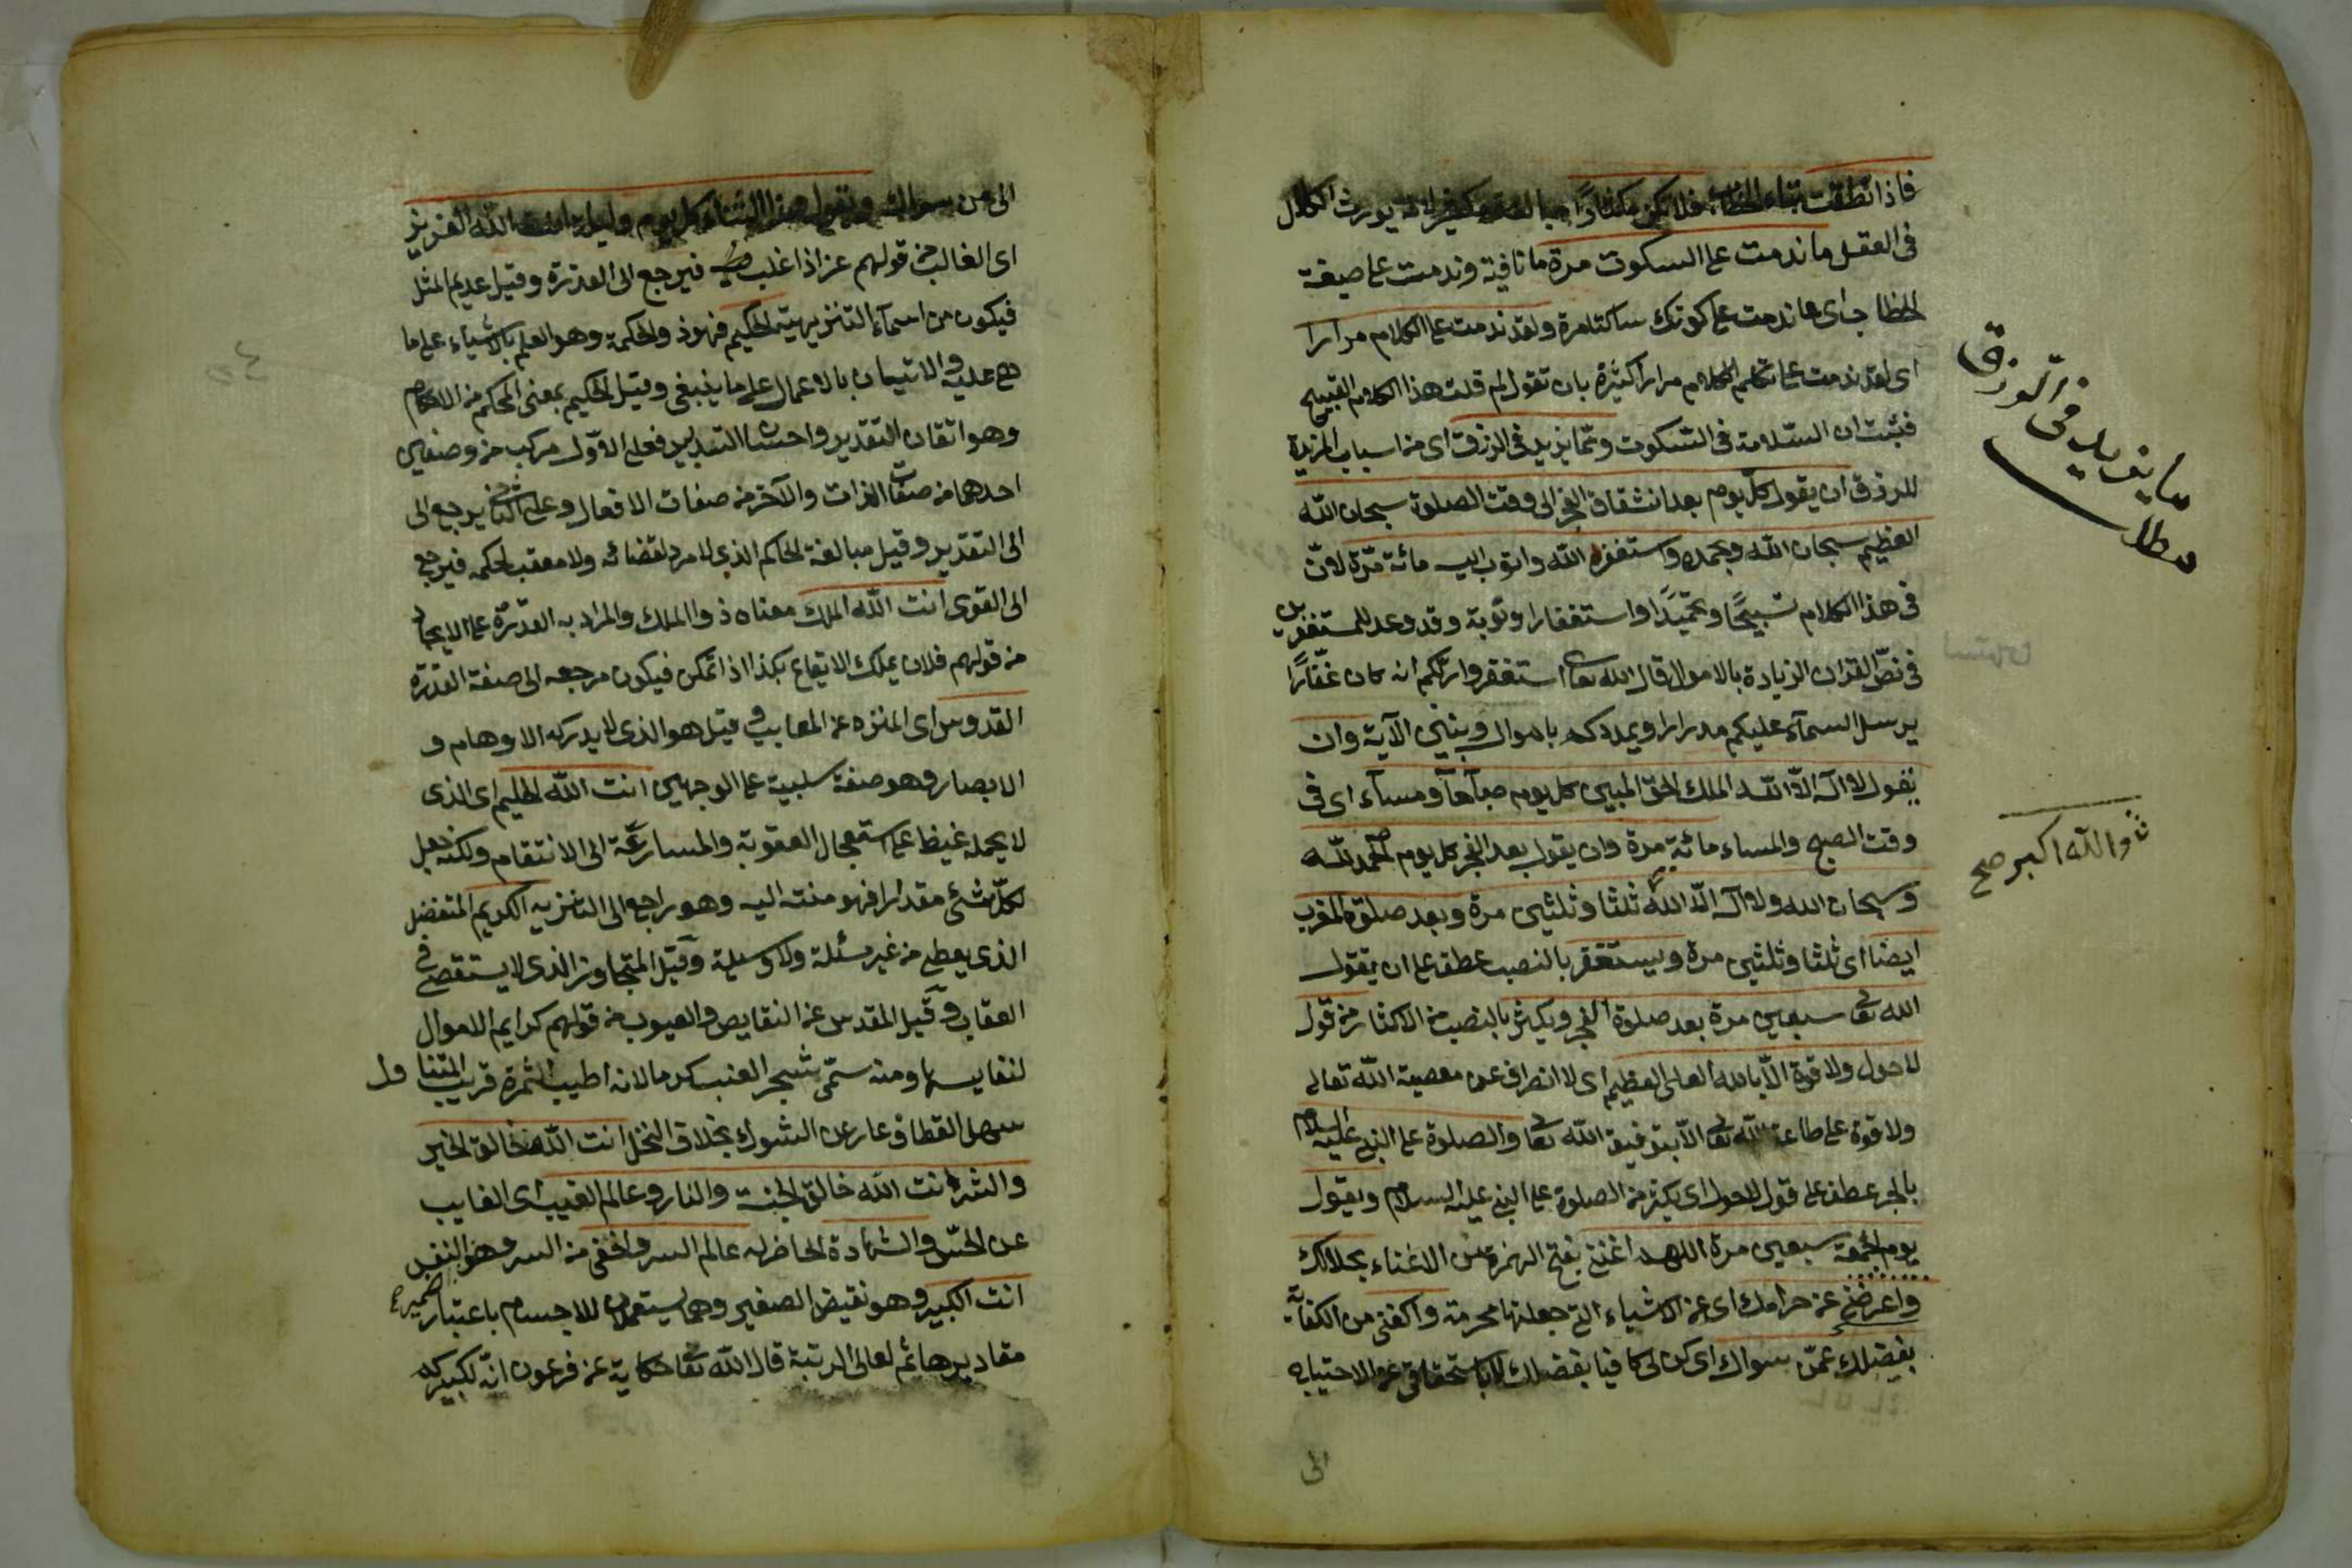 فاذا نطقت بتاء الخطاب فلا تكن مكثارا يورث الكلال
فى العقل ما ندمت على السكوت مرة ما نافية وندمت على صيغة
الخطاب اى ما ندمت على كوتك ساكتا مرة ولقد ندمت على الكلام مرارا
اى لقد ندمت على تكلم الكلام مرارا كثيرة بان تقول لم قلت هذا الكلام القبيح
فثبت ان السلامة فى السكوت ومما يزيد فى الرزق اى من اسباب المزيدة
للرزق ان يقول كل يوم بعد انشقاق الفجر الى وقت الصلوة سبحان الله
العظيم سبحان الله وبحمده واستغفر الله واتوب اليه مائة مرة لان
فى هذا الكلام تسبيحًا وتحميدًا واستغفارا وتوبة وقد وعد للمستغفرين
فى نص القران الزيادة بالاموال قال الله تعا استغفروا ربكم انه كان غفّارًا
يرسل السماء عليكم مدرارا ويمددكم باموال وبنين الآية وان
يقول لا اله الا الله الملك الحق المبين كل يوم صباحًا ومساء اى فى
وقت الصبح والمساء مائة مرة وان يقول بعد الفجر كل يوم الحمد لله
وسبحان الله ولا اله الا الله ثلثا وثلثين مرة وبعد صلوة المغرب
ايضا اى ثلثا وثلثين مرة ويستغفر بالنصب عطف على ان يقول
الله تعا سبعين مرة بعد صلوة الفجر ويكثر بالنصب من الاكثار من قول
لا حول ولا قوة الا بالله العلى العظيم اى لا انصراف عن معصية الله تعالى
ولا قوة على طاعة الله تعا الا بتوفيق الله تعا والصلوة على النبى عليه السلام
بالجر عطف على قول لا حول اى يكثر من الصلوة على النبى عليه السلام ويقول
يوم الجمعة سبعين مرة اللهم اغننى بفتح الهمزة من الاغناء بحلالك
واعرضنى عن حرامك اى عن الاشياء التى جعلتها محرمة واكفنى من الكفاية
بفضلك عمن سواك اى كن لى كافيا بفضلك لا باستحقاقى عن الاحتياج
الى
ما يزيد فى الرزق
مطلب
والله اكبر صح
الى من سواك ويقول هذا الثناء كل يوم وليلة انت الله العزيز
اى الغالب من قولهم عز اذا غلب فيرجع الى القدرة وقيل عديم المثل
فيكون من اسماء التنزيهية الحكيم فهو ذو الحكمة وهو العلم بالاشياء على ما
هى عليه والاتيان بالاعمال على ما ينبغى وقيل الحكيم بمعنى المحكم من الاحكام
وهو اتقان التقدير واحسان التدبير فعلى الاول مركب من وصفين
احدهما من صفات الذات والآخر من صفات الافعال وعلى الثانى يرجع الى
الى التقدير وقيل مبالغة الحاكم الذى لا مرد لقضائه ولا معقب لحكمه فيرجع
الى القوى انت الله الملك معناه ذو الملك والمراد به القدرة على الايجاد
من قولهم فلان يملك الايقاع بكذا اذا تمكن فيكون مرجعه الى صفة القدرة
القدوس اى المنزه عن المعايب وقيل هو الذى لا يدركه الاوهام و
الابصار وهو صفة سلبية على الوجهين انت الله الحليم اى الذى
لا يحمله غيظ على استعجال العقوبة والمسارعة الى الانتقام ولكنه جعل
لكل شئ مقدارا فهو منته اليه وهو راجع الى التنزيه الكريم المتفضل
الذى يعطى من غير مسئلة ولا وسيلة وقيل المتجاوز الذى لا يستقصى فى
العقاب وقيل المقدس عن النقايص والعيوب من قولهم كرايم الاموال
لنفايسها ومنه سمى شجر العنب كرما لانه اطيب الثمرة قريب المتناول
سهل القطاف عار عن الشوك بخلاف النخل انت الله خالق الخير
والشر انت الله خالق الجنة والنار وعالم الغيب اى الغايب
عن الحس والشهادة الحاضر له عالم السر واخفى من السر وهو النفس
انت الكبير وهو نقيض الصغير وهما يستعملان للاجسام باعتبار
مقاديرها ثم لعالى الرتبة قال الله تعا حكاية عن فرعون انه لكبيركم